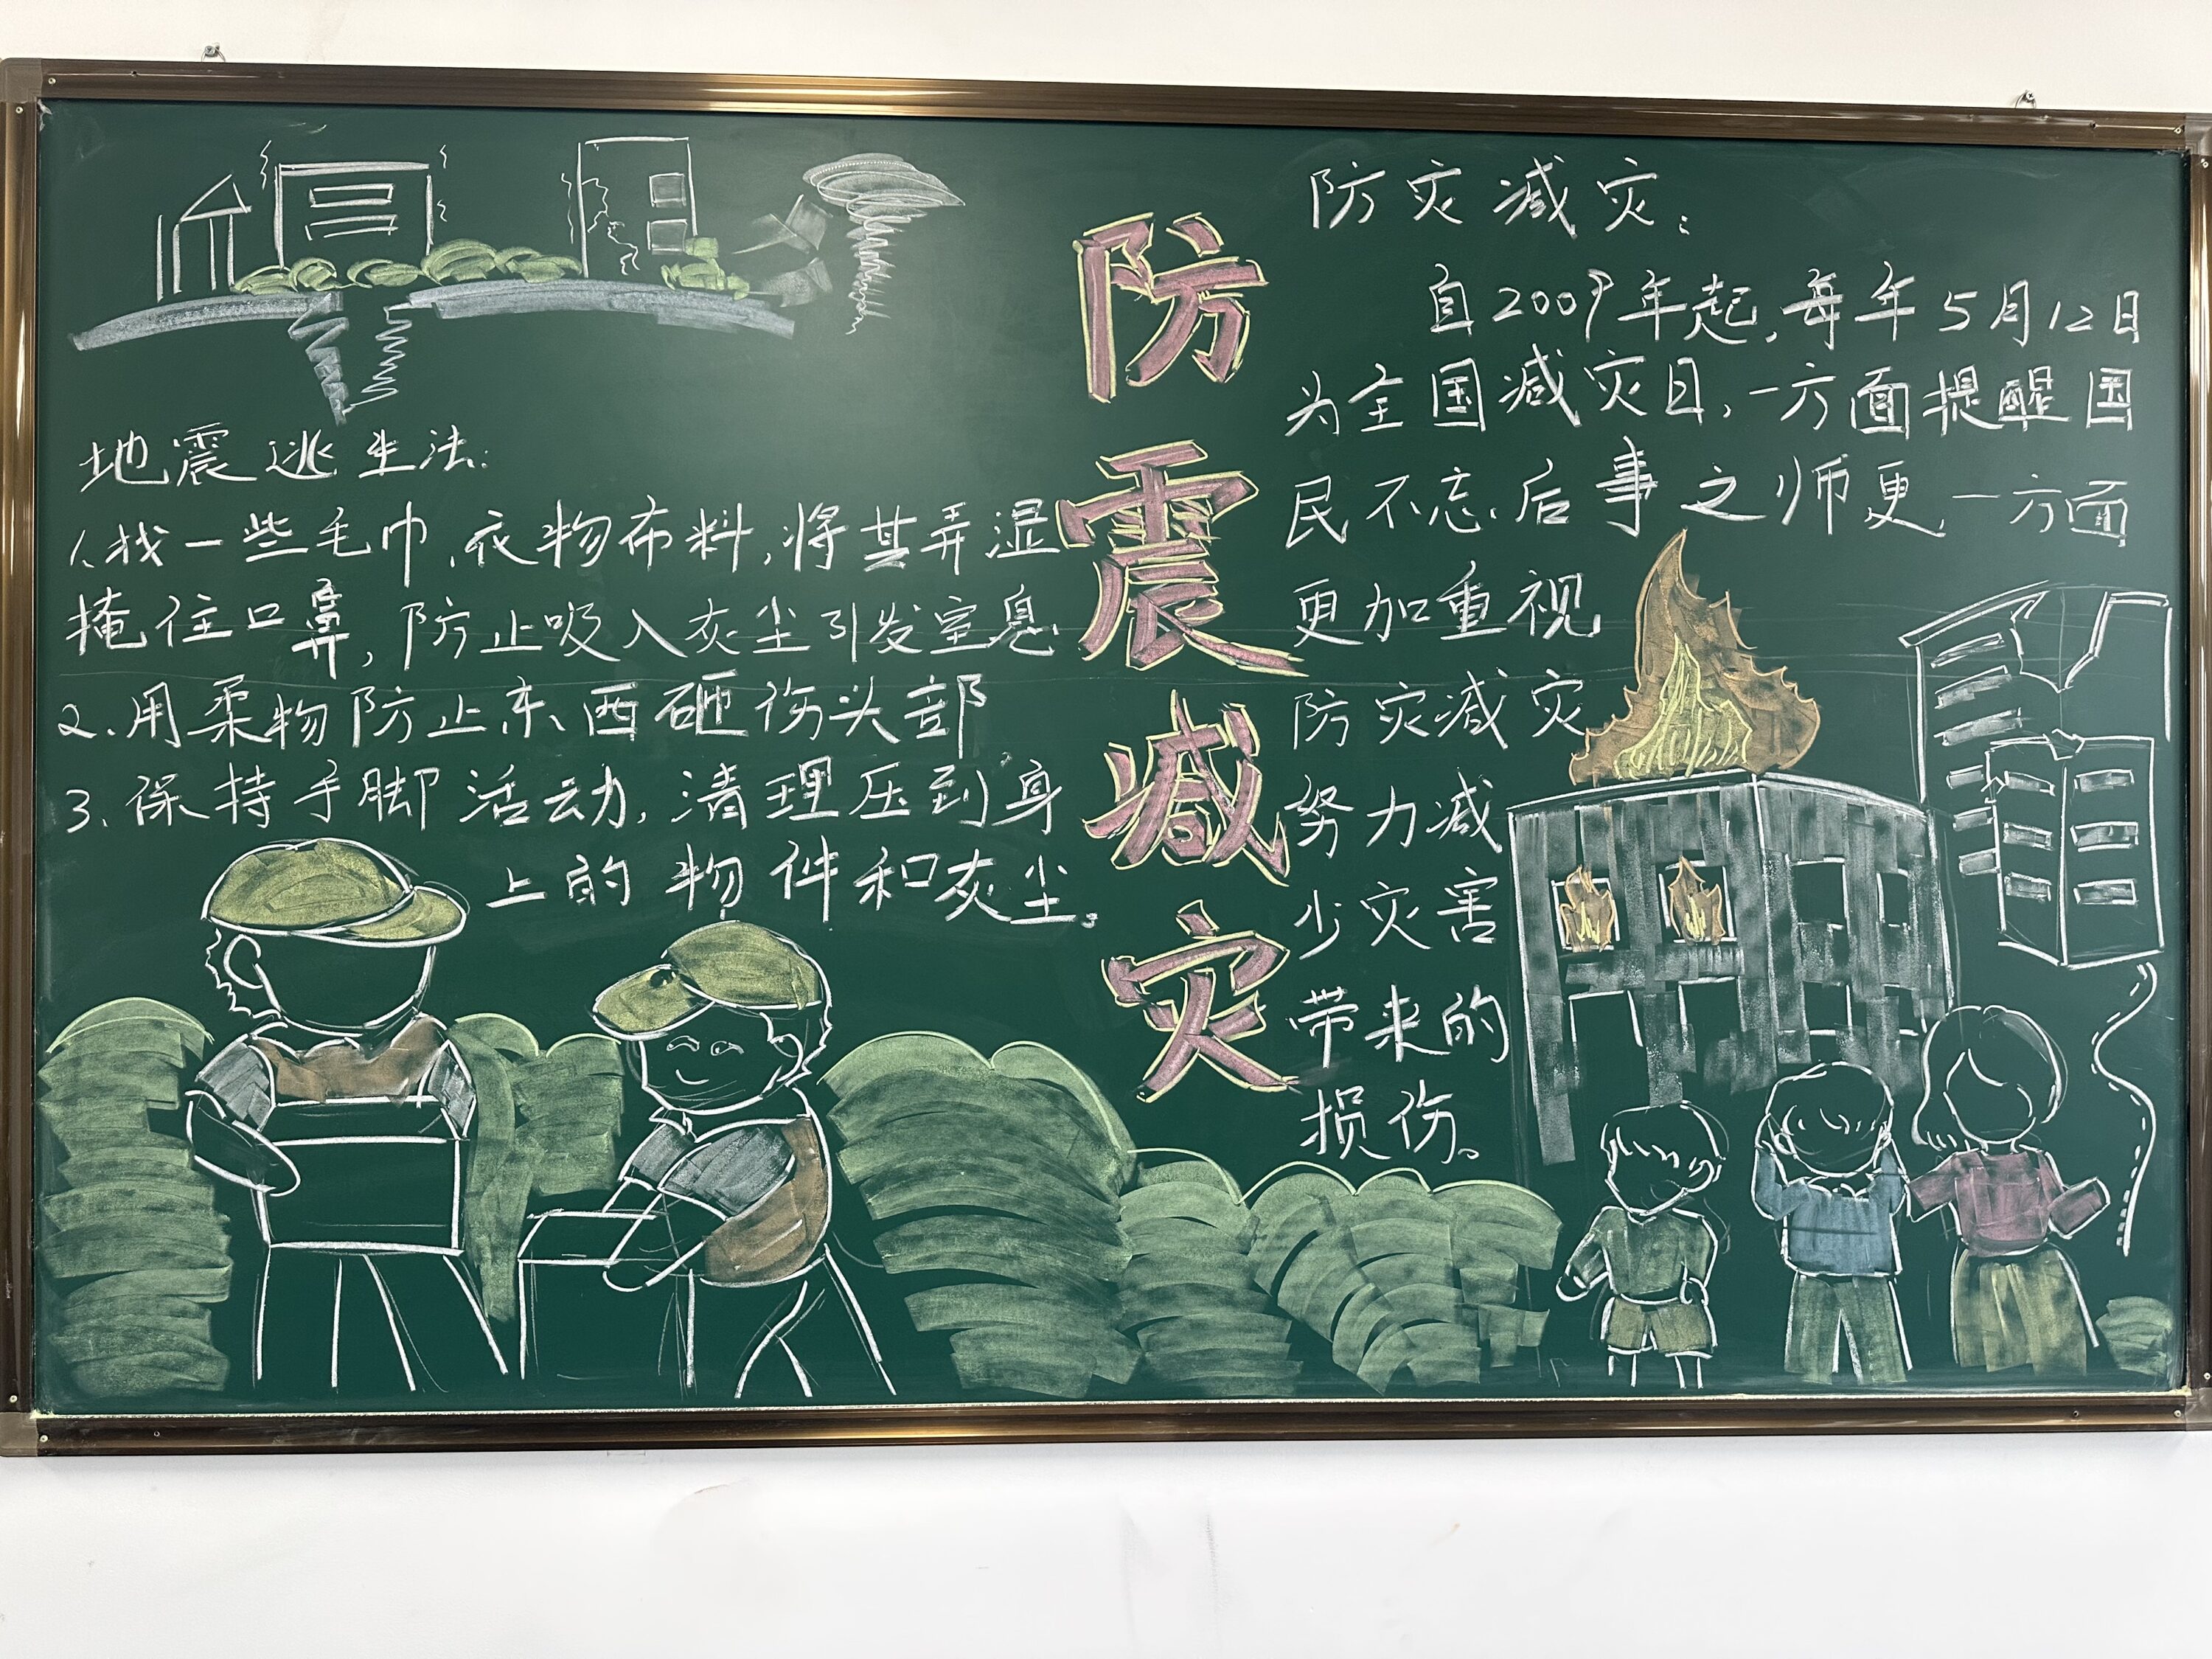 地震逃生法:
1.找一些毛巾、衣物布料,将其弄湿
掩住口鼻,防止吸入灰尘引发室息
2.用柔物防止东西砸伤头部
3.保持手脚活动,清理压到身
上的物件和灰尘。
防震减灾
防灾减灾:
自2009年起,每年5月12日
为全国减灾日,一方面提醒国
民不忘、后事之师更,一方面
更加重视
防灾减灾
努力减
少灾害
带来的
损伤。